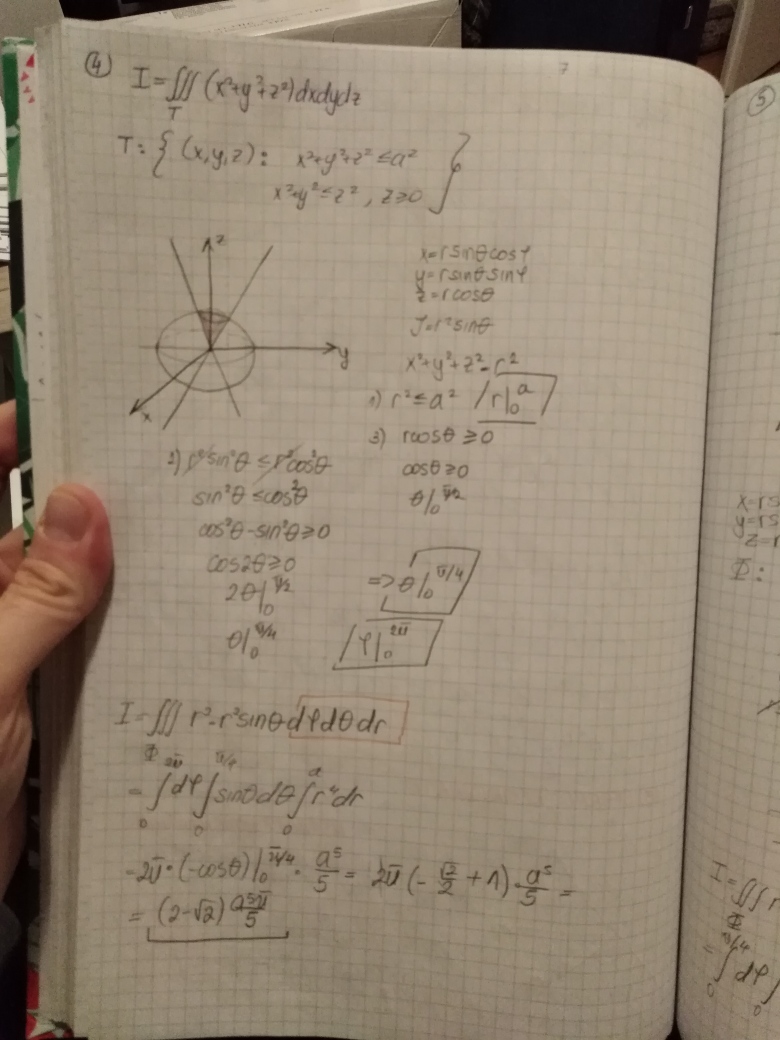 ④ I = ∭ (x²+y²+z²)dxdydz
T
T: { (x,y,z): x²+y²+z² ≤ a²
x²+y² ≤ z², z≥0 }
z
y
x
x=rsinθcosφ
y=rsinθsinφ
z=rcosθ
J=r²sinθ
x²+y²+z²=r²
1) r² ≤ a² /r|₀ᵃ/
3) rcosθ ≥ 0
cosθ ≥ 0
θ|₀^π/2
2) r²sin²θ ≤ r²cos²θ
sin²θ ≤ cos²θ
cos²θ - sin²θ ≥ 0
cos2θ ≥ 0
2θ|₀^π/2
θ|₀^π/4
=> θ|₀^π/4
/φ|₀^2π/
I = ∭ r²·r²sinθ dφdθdr
Φ
= ∫₀^2π dφ ∫₀^π/4 sinθdθ ∫₀^a r⁴dr
= 2π·(-cosθ)|₀^π/4 · a⁵/5 = 2π(-√2/2 + 1)·a⁵/5 =
= (2-√2) a⁵π/5
7
⑤
x=rs
y=rs
z=r
Φ:
I = ∭ r
Φ
= ∫₀^π/4 dφ ∫₀